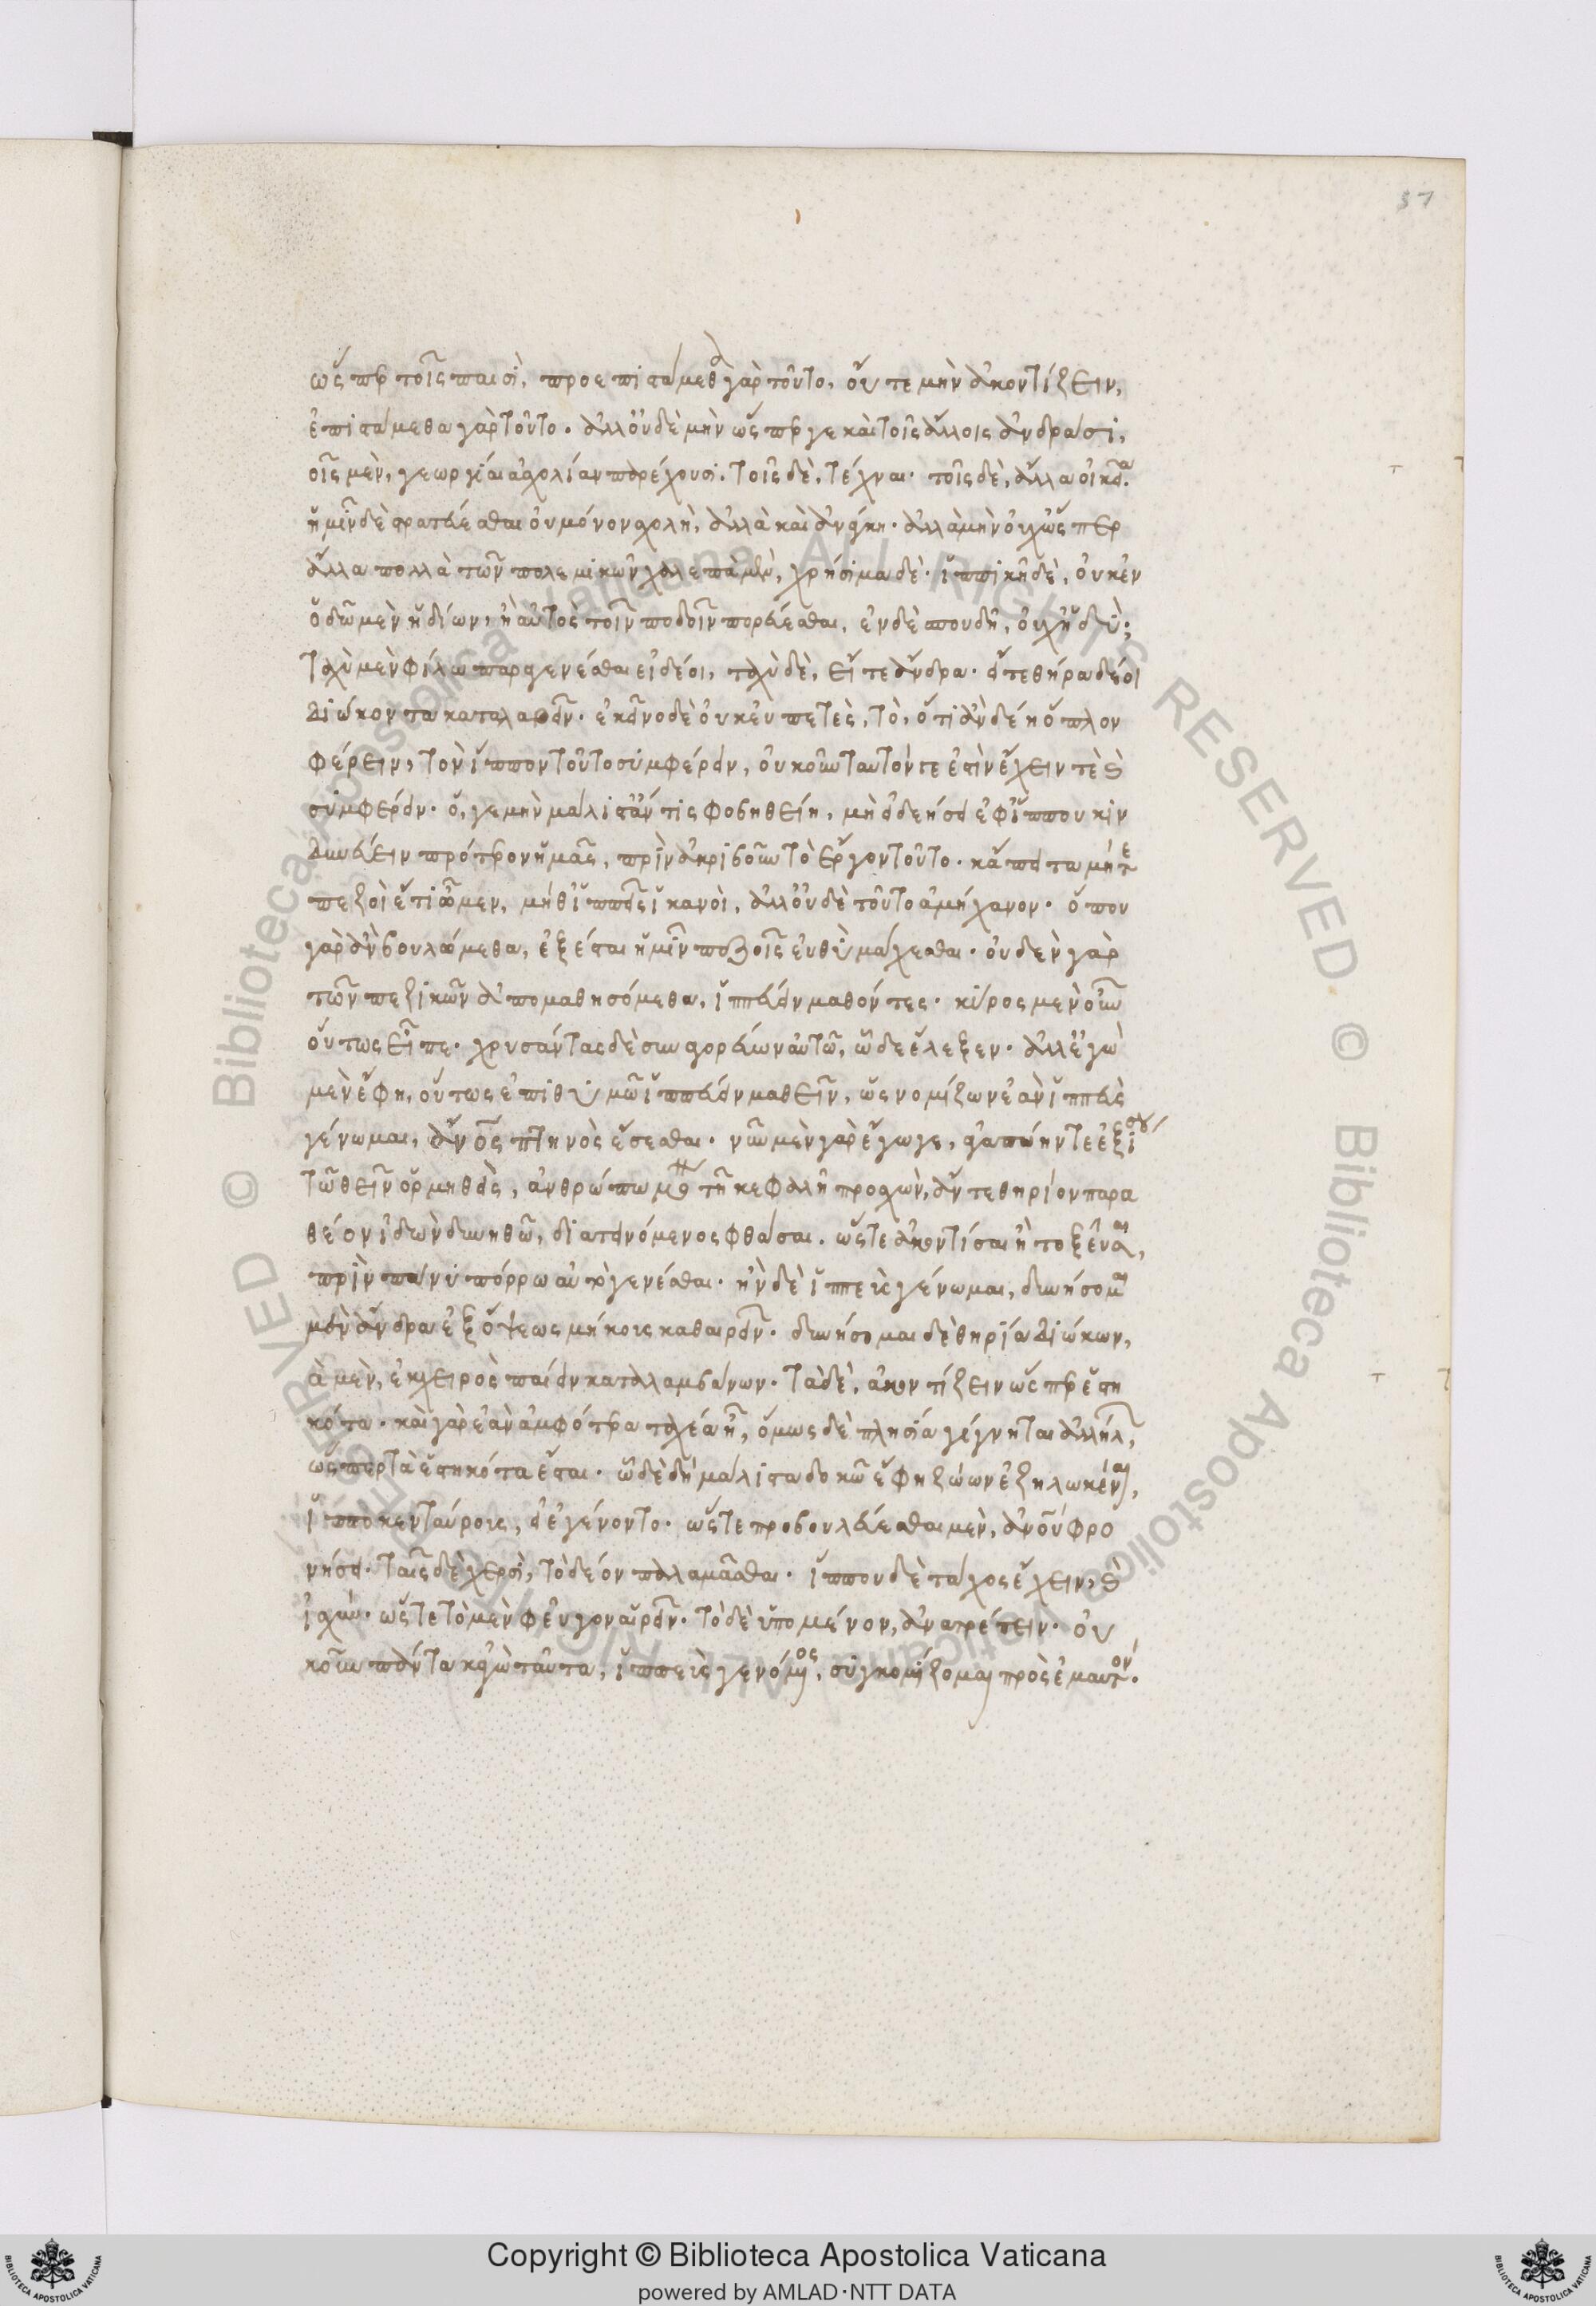 57
ὥσπερ τοῖς παισὶ, προεπιστάμεθα γὰρ τοῦτο. οὔτε μὴν ἀκοντίζειν,
ἐπιστάμεθα γὰρ τοῦτο. ἀλλ' οὐδὲ μὴν ὥσπερ γε καὶ τοῖς ἄλλοις ἀνδράσι,
οἷς μὲν, γεωργίαι ἀσχολίαν παρέχουσι. τοῖς δὲ, τέχναι. τοῖς δὲ, ἄλλα οἰκεῖα.
ἡμῖν δὲ στρατεύεσθαι οὐ μόνον σχολὴ, ἀλλὰ καὶ ἀνάγκη. ἀλλὰ μὴν οὐχ ὥσπερ
ἄλλα πολλὰ τῶν πολεμικῶν χαλεπὰ μὲν, χρήσιμα δὲ. ἱππικὴ δὲ, οὐκ ἐν
ὁδῷ μὲν ἡδίων, ἢ αὐτὸς τοῖν ποδοῖν πορεύεσθαι, ἐν δὲ σπουδῇ, οὐχ ἡδὺ;
ταχὺ μὲν φίλῳ παραγενέσθαι εἰ δέοι, ταχὺ δὲ, εἴτε ἄνδρα. εἴτε θῆρα δέοι
διώκοντα καταλαβεῖν. ἐκεῖνο δὲ οὐκ εὐπετὲς, τὸ, ὅτι ἂν δέῃ ὅπλον
φέρειν, τὸν ἵππον τοῦτο συμφέρειν, οὐκοῦν ταυτόν τε ἐστὶν ἔχειν τὲ καὶ
συμφέρειν. ὅ, γε μὴν μάλιστ' ἄν τις φοβηθείη, μὴ εἰ δεήσει ἐφ' ἵππου κιν
δυνεύειν πρότερον ἡμᾶς, πρὶν ἀκριβοῦν τὸ ἔργον τοῦτο. κἄπειτα μήτε
πεζοὶ ἔτι ὦμεν, μήθ' ἱππεῖς ἱκανοὶ, ἀλλ' οὐδὲ τοῦτο ἀμήχανον. ὅπου
γὰρ ἂν βουλώμεθα, ἐξέσται ἡμῖν πεζοῖς εὐθὺ μάχεσθαι. οὐδὲν γὰρ
τῶν πεζικῶν ἀπομαθησόμεθα, ἱππεύειν μαθόντες. κῦρος μὲν οὖν
οὕτως εἶπε. χρυσάντας δὲ συναγορεύων αὐτῷ, ὧδε ἔλεξεν. ἀλλ' ἐγὼ
μὲν ἔφη, οὕτως ἐπιθυμῶ ἱππεύειν μαθεῖν, ὡς νομίζων ἐὰν ἱππεὺς
γένωμαι, ἄν̓ος πτηνὸς ἔσεσθαι. νῦν μὲν γὰρ ἔγωγε, ἀγαπῴην τε ἐξ ἴσου
τῷ θεῖν ὁρμηθεὶς, ἀνθρώπῳ μόνον τῇ κεφαλῇ προσχὼν, ἄν τε θηρίον παρα
θέον ἰδὼν δυνηθῶ, διατεινόμενος φθάσαι. ὥστε ἀκοντίσαι ἢ τοξεῦσαι,
πρὶν πάνυ πόρρω αὐτὸ γενέσθαι. ἢν δὲ ἱππεὺς γένωμαι, δυνήσομαι
μὲν ἄνδρα ἐξ ὄψεως μήκους καθαιρεῖν. δυνήσομαι δὲ θηρία διώκων,
ἃ μὲν, ἐκ χειρὸς παίειν καταλαμβάνων. τὰ δὲ, ἀκοντίζειν ὥσπερ ἑστη
κότα. καὶ γὰρ ἐὰν ἀμφότερα ταχέα ᾖ, ὅμως δὲ πλησία γίγνηται ἀλλήλων,
ὥσπερ τὰ ἑστηκότα ἔσται. ὧ δὲ δὴ μάλιστα δοκῶ ἔφη ζώων ἐζηλωκέναι,
ἱπποκενταύρους, εἰ ἐγένοντο. ὥστε προβουλεύεσθαι μὲν, ἀν̓ου φρο
νήσει. ταῖς δὲ χερσὶ, τὸ δέον παλαμᾶσθαι. ἵππου δὲ τάχος ἔχειν, καὶ
ἰσχύν. ὥστε τὸ μὲν φεῦγον αἱρεῖν. τὸ δὲ ὑπομένον, ἀνατρέπειν. οὐ
κοῦν πάντα κἀγὼ ταῦτα, ἱππεὺς γενόμενος, συγκομίζομαι πρὸς ἐμαυτόν.
Copyright © Biblioteca Apostolica Vaticana
powered by AMLAD·NTT DATA